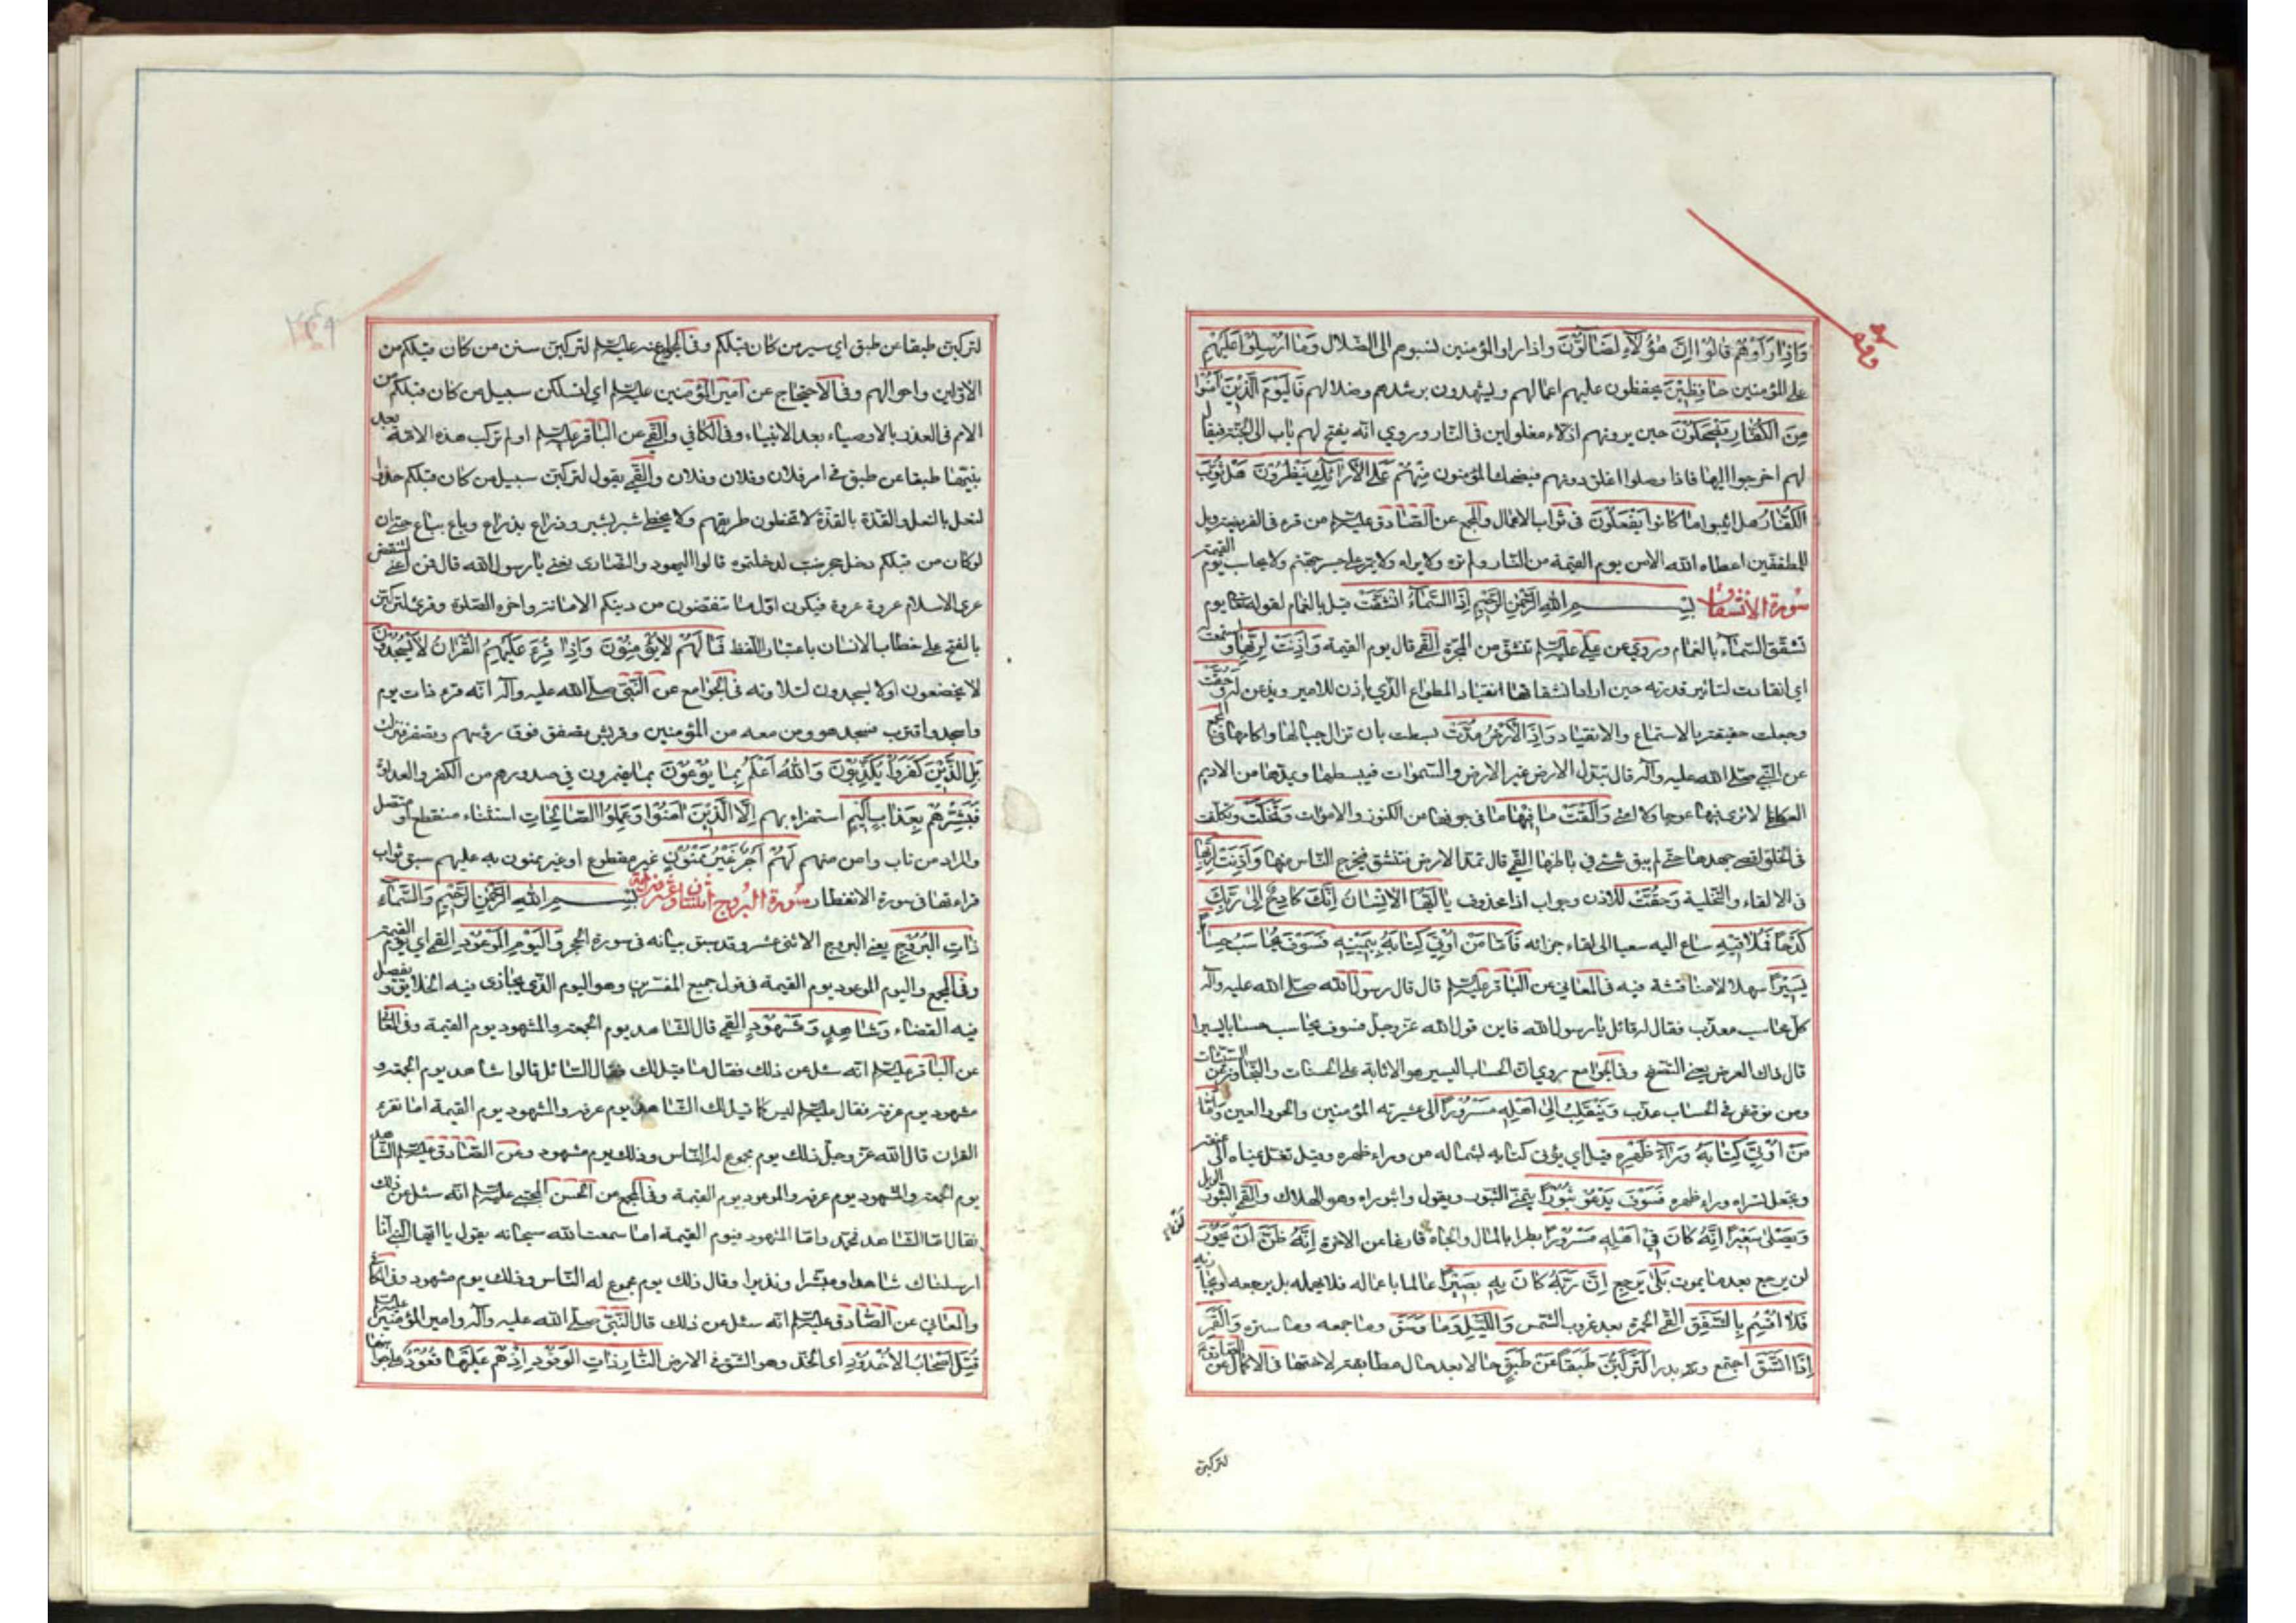 وَاِذَا رَاَوْهُمْ قَالُوْا اِنَّ هٰؤُلَآءِ لَضَآلُّوْنَ واذا راوا المؤمنين نسبوهم الى الضلال وَمَا اُرْسِلُوْا عَلَيْهِمْ
على المؤمنين حَافِظِيْنَ يحفظون عليهم اعمالهم ويشهدون برشدهم وضلالهم فَالْيَوْمَ الَّذِيْنَ اٰمَنُوْا
مِنَ الْكُفَّارِ يَضْحَكُوْنَ حين يرونهم اذلاء مغلولين فى النار وروي انه يفتح لهم باب الى الجنة فيقال
لهم اخرجوا اليها فاذا وصلوا اغلق دونهم فيضحك المؤمنون منهم عَلَى الْاَرَائِكِ يَنْظُرُوْنَ هَلْ ثُوِّبَ
الْكُفَّارُ هل اثيبوا مَا كَانُوا يَفْعَلُوْنَ فى ثواب الاعمال والمجمع عن الصادق عليه السلام من قرء فى الفريضة ويل
للمطففين اعطاه الله الامن يوم القيمة من النار ولم تره ولا يراه ولا يمر على جسر جهنم ولا يحاسب يوم القيمة
سورة الانشقاق بِسْمِ اللهِ الرَّحْمٰنِ الرَّحِيْمِ اِذَا السَّمَآءُ انْشَقَّتْ قيل بالغمام لقوله تعالى يوم
تشقق السماء بالغمام وروي عن علي عليه السلام تنشق من المجرة القمي قال يوم القيمة وَاَذِنَتْ لِرَبِّهَا واستمعت
اي انقادت لتاثير قدرته حين اراد انشقاقها انقياد المطواع الذي ياذن للامير ويذعن له وَحُقَّتْ
وجعلت حقيقة بالاستماع والانقياد وَاِذَا الْاَرْضُ مُدَّتْ بسطت بان تزال جبالها واكامها فى المجمع
عن النبي صلى الله عليه وآله قال تبدل الارض غير الارض والسموات فيبسطها ويمدها مد الاديم
العكاظي لا ترى فيها عوجا ولا امتا وَاَلْقَتْ مَا فِيْهَا ما فى جوفها من الكنوز والاموات وَتَخَلَّتْ وتكلفت
فى الخلو اقصى جهدها حتى لم يبق شئ في باطنها القمي قال تمد الارض فتنشق فيخرج الناس منها وَاَذِنَتْ لِرَبِّهَا
فى الالقاء والتخلية وَحُقَّتْ للاذن وجواب اذا محذوف يَا اَيُّهَا الْاِنْسَانُ اِنَّكَ كَادِحٌ اِلٰى رَبِّكَ
كَدْحًا فَمُلَاقِيْهِ ساع اليه سعيا الى لقاء جزائه فَاَمَّا مَنْ اُوْتِيَ كِتَابَهُ بِيَمِيْنِهِ فَسَوْفَ يُحَاسَبُ حِسَابًا
يَسِيْرًا سهلا لا مناقشة فيه فى المعاني عن الباقر عليه السلام قال قال رسول الله صلى الله عليه وآله
كل محاسب معذب فقال له قائل يا رسول الله فاين قول الله عز وجل فسوف يحاسب حسابا يسيرا
قال ذاك العرض يعني التصفح وفى الجوامع روي ان الحساب اليسير هو الاثابة على الحسنات والتجاوز عن السيئات
ومن نوقش في الحساب عذب وَيَنْقَلِبُ اِلٰى اَهْلِهِ مَسْرُوْرًا الى عشيرته المؤمنين والحور العين وَاَمَّا
مَنْ اُوْتِيَ كِتَابَهُ وَرَآءَ ظَهْرِهِ قيل اي يؤتى كتابه بشماله من وراء ظهره وقيل تغل يمناه الى عنقه
وتجعل يسراه وراء ظهره فَسَوْفَ يَدْعُوْ ثُبُوْرًا يتمنى الثبور ويقول واثبوراه وهو الهلاك والقمي الثبور الويل
وَيَصْلٰى سَعِيْرًا اِنَّهُ كَانَ فِيْ اَهْلِهِ مَسْرُوْرًا بطرا بالمال والجاه فارغا عن الاخرة اِنَّهُ ظَنَّ اَنْ لَنْ يَحُوْرَ
لن يرجع بعد ما يموت بَلٰى يرجع اِنَّ رَبَّهُ كَانَ بِهِ بَصِيْرًا عالما باعماله فلا يهمله بل يرجعه ويجازيه
فَلَا اُقْسِمُ بِالشَّفَقِ القمي الحمرة بعد غروب الشمس وَاللَّيْلِ وَمَا وَسَقَ وما جمعه وما ستره وَالْقَمَرِ
اِذَا اتَّسَقَ اجتمع وتم بدرا لَتَرْكَبُنَّ طَبَقًا عَنْ طَبَقٍ حالا بعد حال مطابقة لاختها فى الاكمال عن الصادق
لتركبن
لتركبن طبقا عن طبق اي سير من كان قبلكم وفى الجوامع عنه عليه السلام لتركبن سنن من كان قبلكم من
الاولين واحوالهم وفى الاحتجاج عن امير المؤمنين عليه السلام اي لتسلكن سبيل من كان قبلكم من
الامم فى الغدر بالاوصياء بعد الانبياء وفى الكافي والقمي عن الباقر عليه السلام اولم تركب هذه الامة بعد
نبيها طبقا عن طبق في امر فلان وفلان وفلان والقمي يقول لتركبن سبيل من كان قبلكم حذو
النعل بالنعل والقذة بالقذة لا تخطون طريقهم ولا يخطى شبر بشبر وذراع بذراع وباع بباع حتى ان
لو كان من قبلكم دخل جحر ضب لدخلتموه قالوا اليهود والنصارى تعني يا رسول الله قال فمن اعني لتنقض
عرى الاسلام عروة عروة فيكون اول ما تنقضون من دينكم الامانة واخره الصلوة وقرئ لتركبن
بالفتح على خطاب الانسان باعتبار اللفظ فَمَا لَهُمْ لَا يُؤْمِنُوْنَ وَاِذَا قُرِئَ عَلَيْهِمُ الْقُرْاٰنُ لَا يَسْجُدُوْنَ
لا يخضعون او لا يسجدون لتلاوته فى الجوامع عن النبي صلى الله عليه وآله انه قرء ذات يوم
واسجد واقترب فسجد هو ومن معه من المؤمنين وقريش تصفق فوق رؤسهم وتصفر فنزلت
بَلِ الَّذِيْنَ كَفَرُوْا يُكَذِّبُوْنَ وَاللهُ اَعْلَمُ بِمَا يُوْعُوْنَ بما يضمرون في صدورهم من الكفر والعداوة
فَبَشِّرْهُمْ بِعَذَابٍ اَلِيْمٍ استهزاء بهم اِلَّا الَّذِيْنَ اٰمَنُوْا وَعَمِلُوا الصَّالِحَاتِ استثناء منقطع او متصل
والمراد من تاب وامن منهم لَهُمْ اَجْرٌ غَيْرُ مَمْنُوْنٍ غير مقطوع او غير ممنون به عليهم سبق ثواب
قراءتها فى سورة الانفطار سورة البروج بِسْمِ اللهِ الرَّحْمٰنِ الرَّحِيْمِ وَالسَّمَآءِ
ذَاتِ الْبُرُوْجِ يعني البروج الاثنى عشر وقد سبق بيانه فى سورة الحجر وَالْيَوْمِ الْمَوْعُوْدِ القمي اي يوم القيمة
وفى المجمع واليوم الموعود يوم القيمة فى قول جميع المفسرين وهو اليوم الذي يجازى فيه الخلايق ويفصل
فيه القضاء وَشَاهِدٍ وَمَشْهُوْدٍ القمي قال الشاهد يوم الجمعة والمشهود يوم القيمة وفى المعاني
عن الباقر عليه السلام انه سئل عن ذلك فقال ما قيل لك فقال السائل قالوا شاهد يوم الجمعة و
مشهود يوم عرفة فقال عليه السلام ليس كما قيل لك الشاهد يوم عرفة والمشهود يوم القيمة اما تقرء
القران قال الله عز وجل ذلك يوم مجموع له الناس وذلك يوم مشهود وعن الصادق عليه السلام الشاهد
يوم الجمعة والمشهود يوم عرفة والموعود يوم القيمة وفى المجمع عن الحسن المجتبى عليه السلام انه سئل عن ذلك
فقال اما الشاهد محمد واما المشهود فيوم القيمة اما سمعت الله سبحانه يقول يا ايها النبي انا
ارسلناك شاهدا ومبشرا ونذيرا وقال ذلك يوم مجموع له الناس وذلك يوم مشهود وفى الكافي
والمعاني عن الصادق عليه السلام انه سئل عن ذلك قال النبي صلى الله عليه وآله وامير المؤمنين عليه السلام
قُتِلَ اَصْحَابُ الْاُخْدُوْدِ اي الخد وهو الشق فى الارض النَّارِ ذَاتِ الْوَقُوْدِ اِذْ هُمْ عَلَيْهَا قُعُوْدٌ على جوانبها